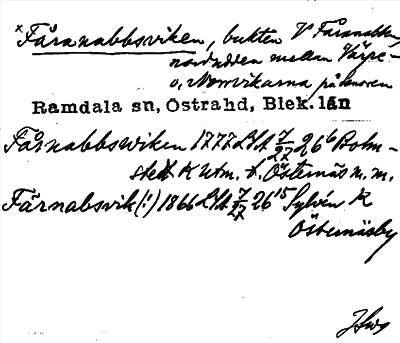 × Fåranabbsviken, bukten V Fåranabben,
nordudden mellan Värpe-
o. Norrvikarna på Senoren
Ramdala sn, Östrahd, Blek. län
Fårnabbswiken 1777 LSA 7/27 26⁶ Bolm-
stedt K Utm. t. Östernäs m. m.
Fårnabsvik (!) 1866 LSA 7/27 26¹⁵ Sylvén K
Östernäsby